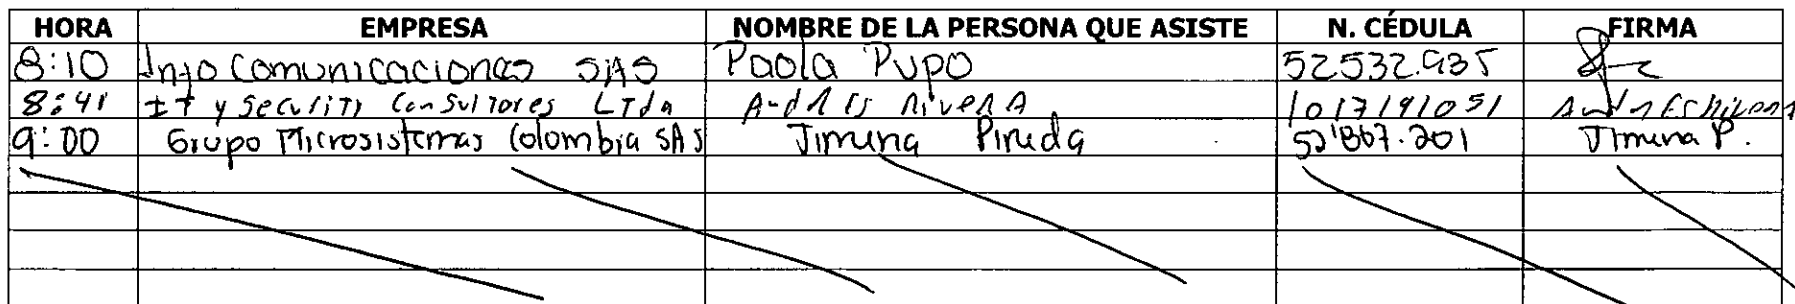 HORA EMPRESA NOMBRE DE LA PERSONA QUE ASISTE N. CÉDULA FIRMA
8:10 Info Comunicaciones SAS Paola Pupo 52532.935
8:41 IT y Security Consultores LTda Andres Rivera 1017191051
9:00 Grupo Microsistemas Colombia SAS Jimena Pineda 52'867.201 Jimena P.